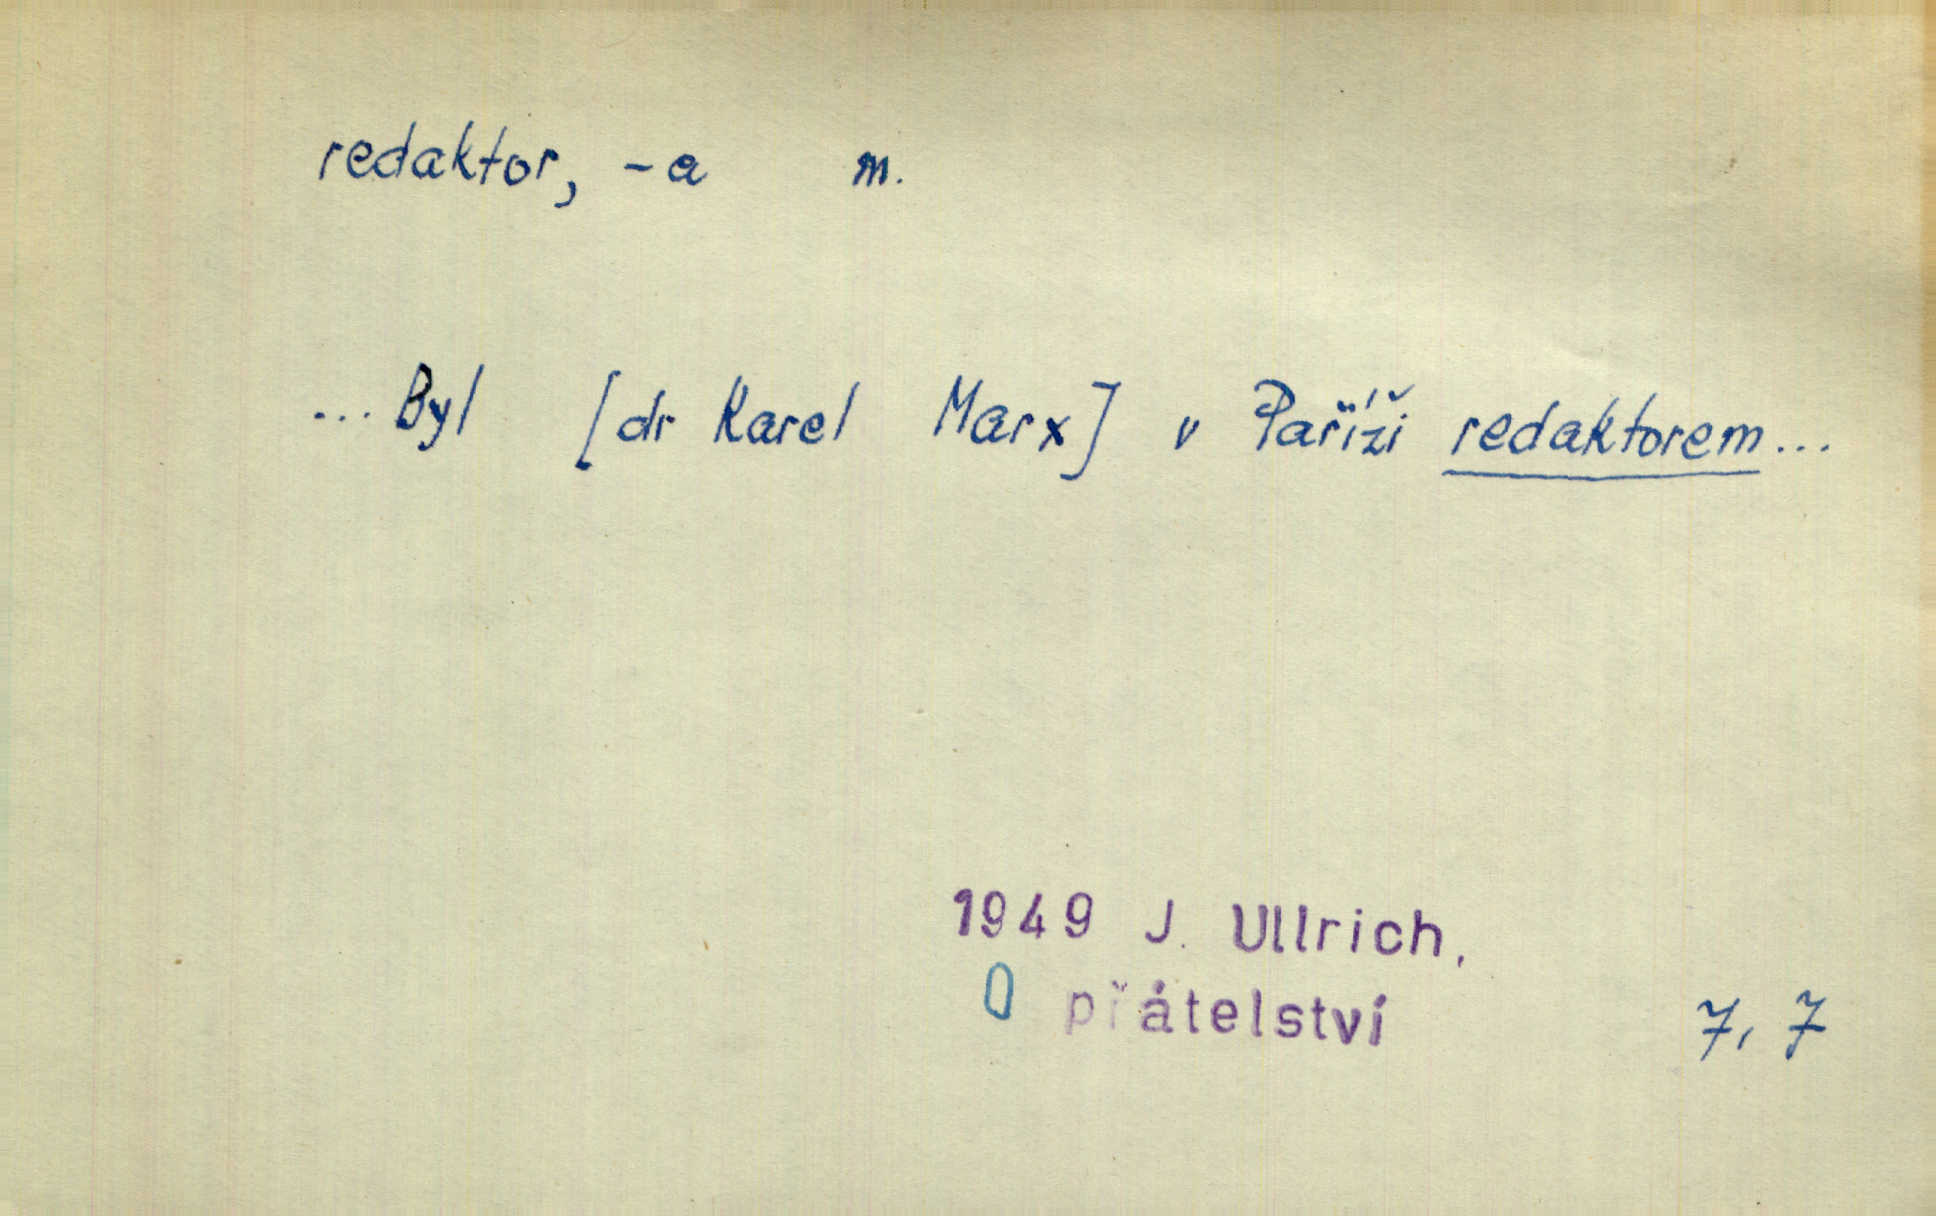 redaktor, -a m.
... Byl [dr Karel Marx] v Paříži redaktorem...
1949 J. Ullrich,
O přátelství 7, 7